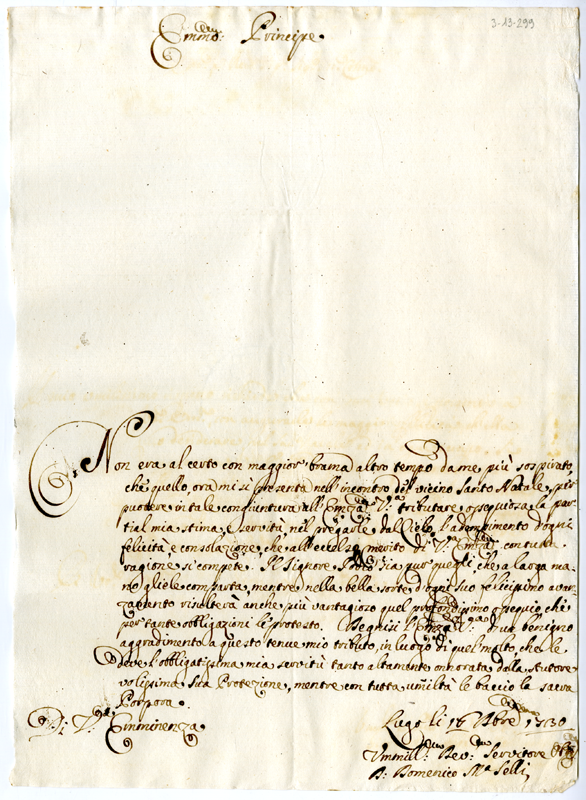 3-13-299
Emmo: Principe
Non era al certo con maggior brama altro tempo da me più sospirato,
che quello, ora mi si presenta nell'incontro del vicino Santo Natale, per
puotere in tale congiuntura all'Emza Va tributare ossequiosa la par-
tial mia stima, e servitù, nel pregarle dal Cielo l'adempimento d'ogni
felicità e consolazione, che all'eccelso merito di Va Emza con tutta
ragione si compete. Il Signore Iddio sia pur quegli, che a larga ma-
no gliele comparta, mentre nella bella sorte d'ogni suo felicissimo avan-
zamento risulterà anche più vantagioso quel profondissimo ossequio, che
per tante obbligazioni le protesto. Degnisi l'Emza Va due benigno
aggradimento a questo tenue mio tributo, in luogo di quel molto, che le
deve l'obbligatissima mia servitù tanto altamente onnorata dalla Autore
volissima sua Protezione, mentre con tutta umiltà le baccio la sacra
Porpora.
Di Va Emminenza
Lugo li 16 Xbre 1730
Ummill: Dev: Servitore Obb
D. Domenico Ma Selli